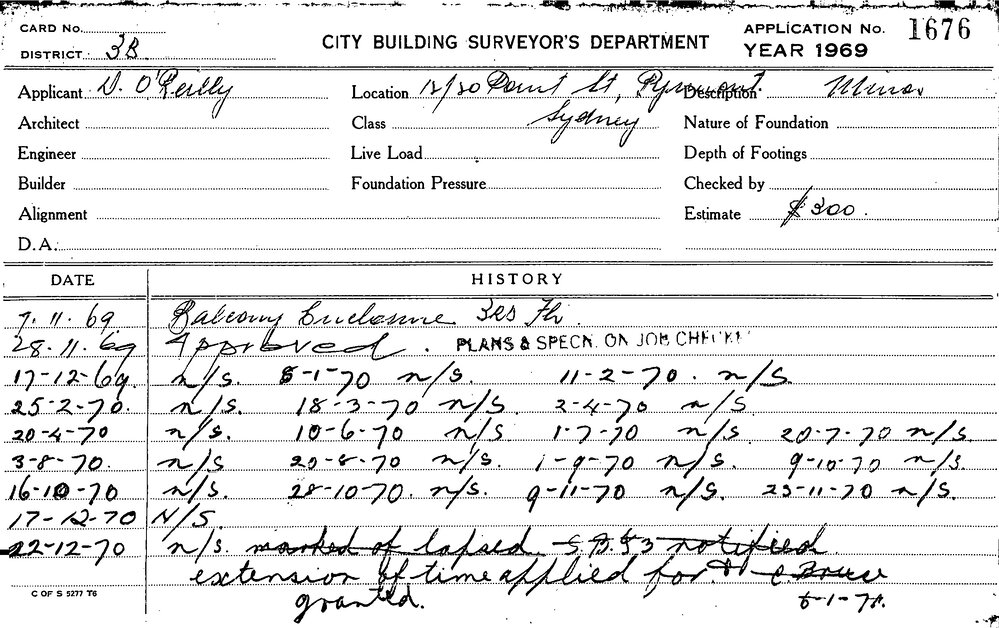 CARD No. APPLICATION No. 1676
DISTRICT 3B. CITY BUILDING SURVEYOR'S DEPARTMENT YEAR 1969
Applicant D. O'Reilly Location 12/20 Point St, Pyrmont. Description Minor
Architect Class Sydney Nature of Foundation
Engineer Live Load Depth of Footings
Builder Foundation Pressure Checked by
Alignment Estimate $300.
D.A.
DATE HISTORY
7.11.69 Balcony Enclosure
28.11.69 Approved. PLANS & SPECN. ON JOB CHECKED
17-12-69. n/s. 8-1-70 n/s. 11-2-70. n/s.
25-2-70. n/s. 18-3-70 n/s. 2-4-70 n/s
20-4-70 n/s. 10-6-70 n/s. 1-7-70 n/s. 20-7-70 n/s.
3-8-70. n/s 20-8-70 n/s. 1-9-70 n/s. 9-10-70 n/s.
16-10-70 n/s. 28-10-70. n/s. 9-11-70 n/s. 23-11-70 n/s.
17-12-70 N/S.
22-12-70 n/s. marked of lapsed notified
extension of time applied for
granted.
C OF S 5277 T6